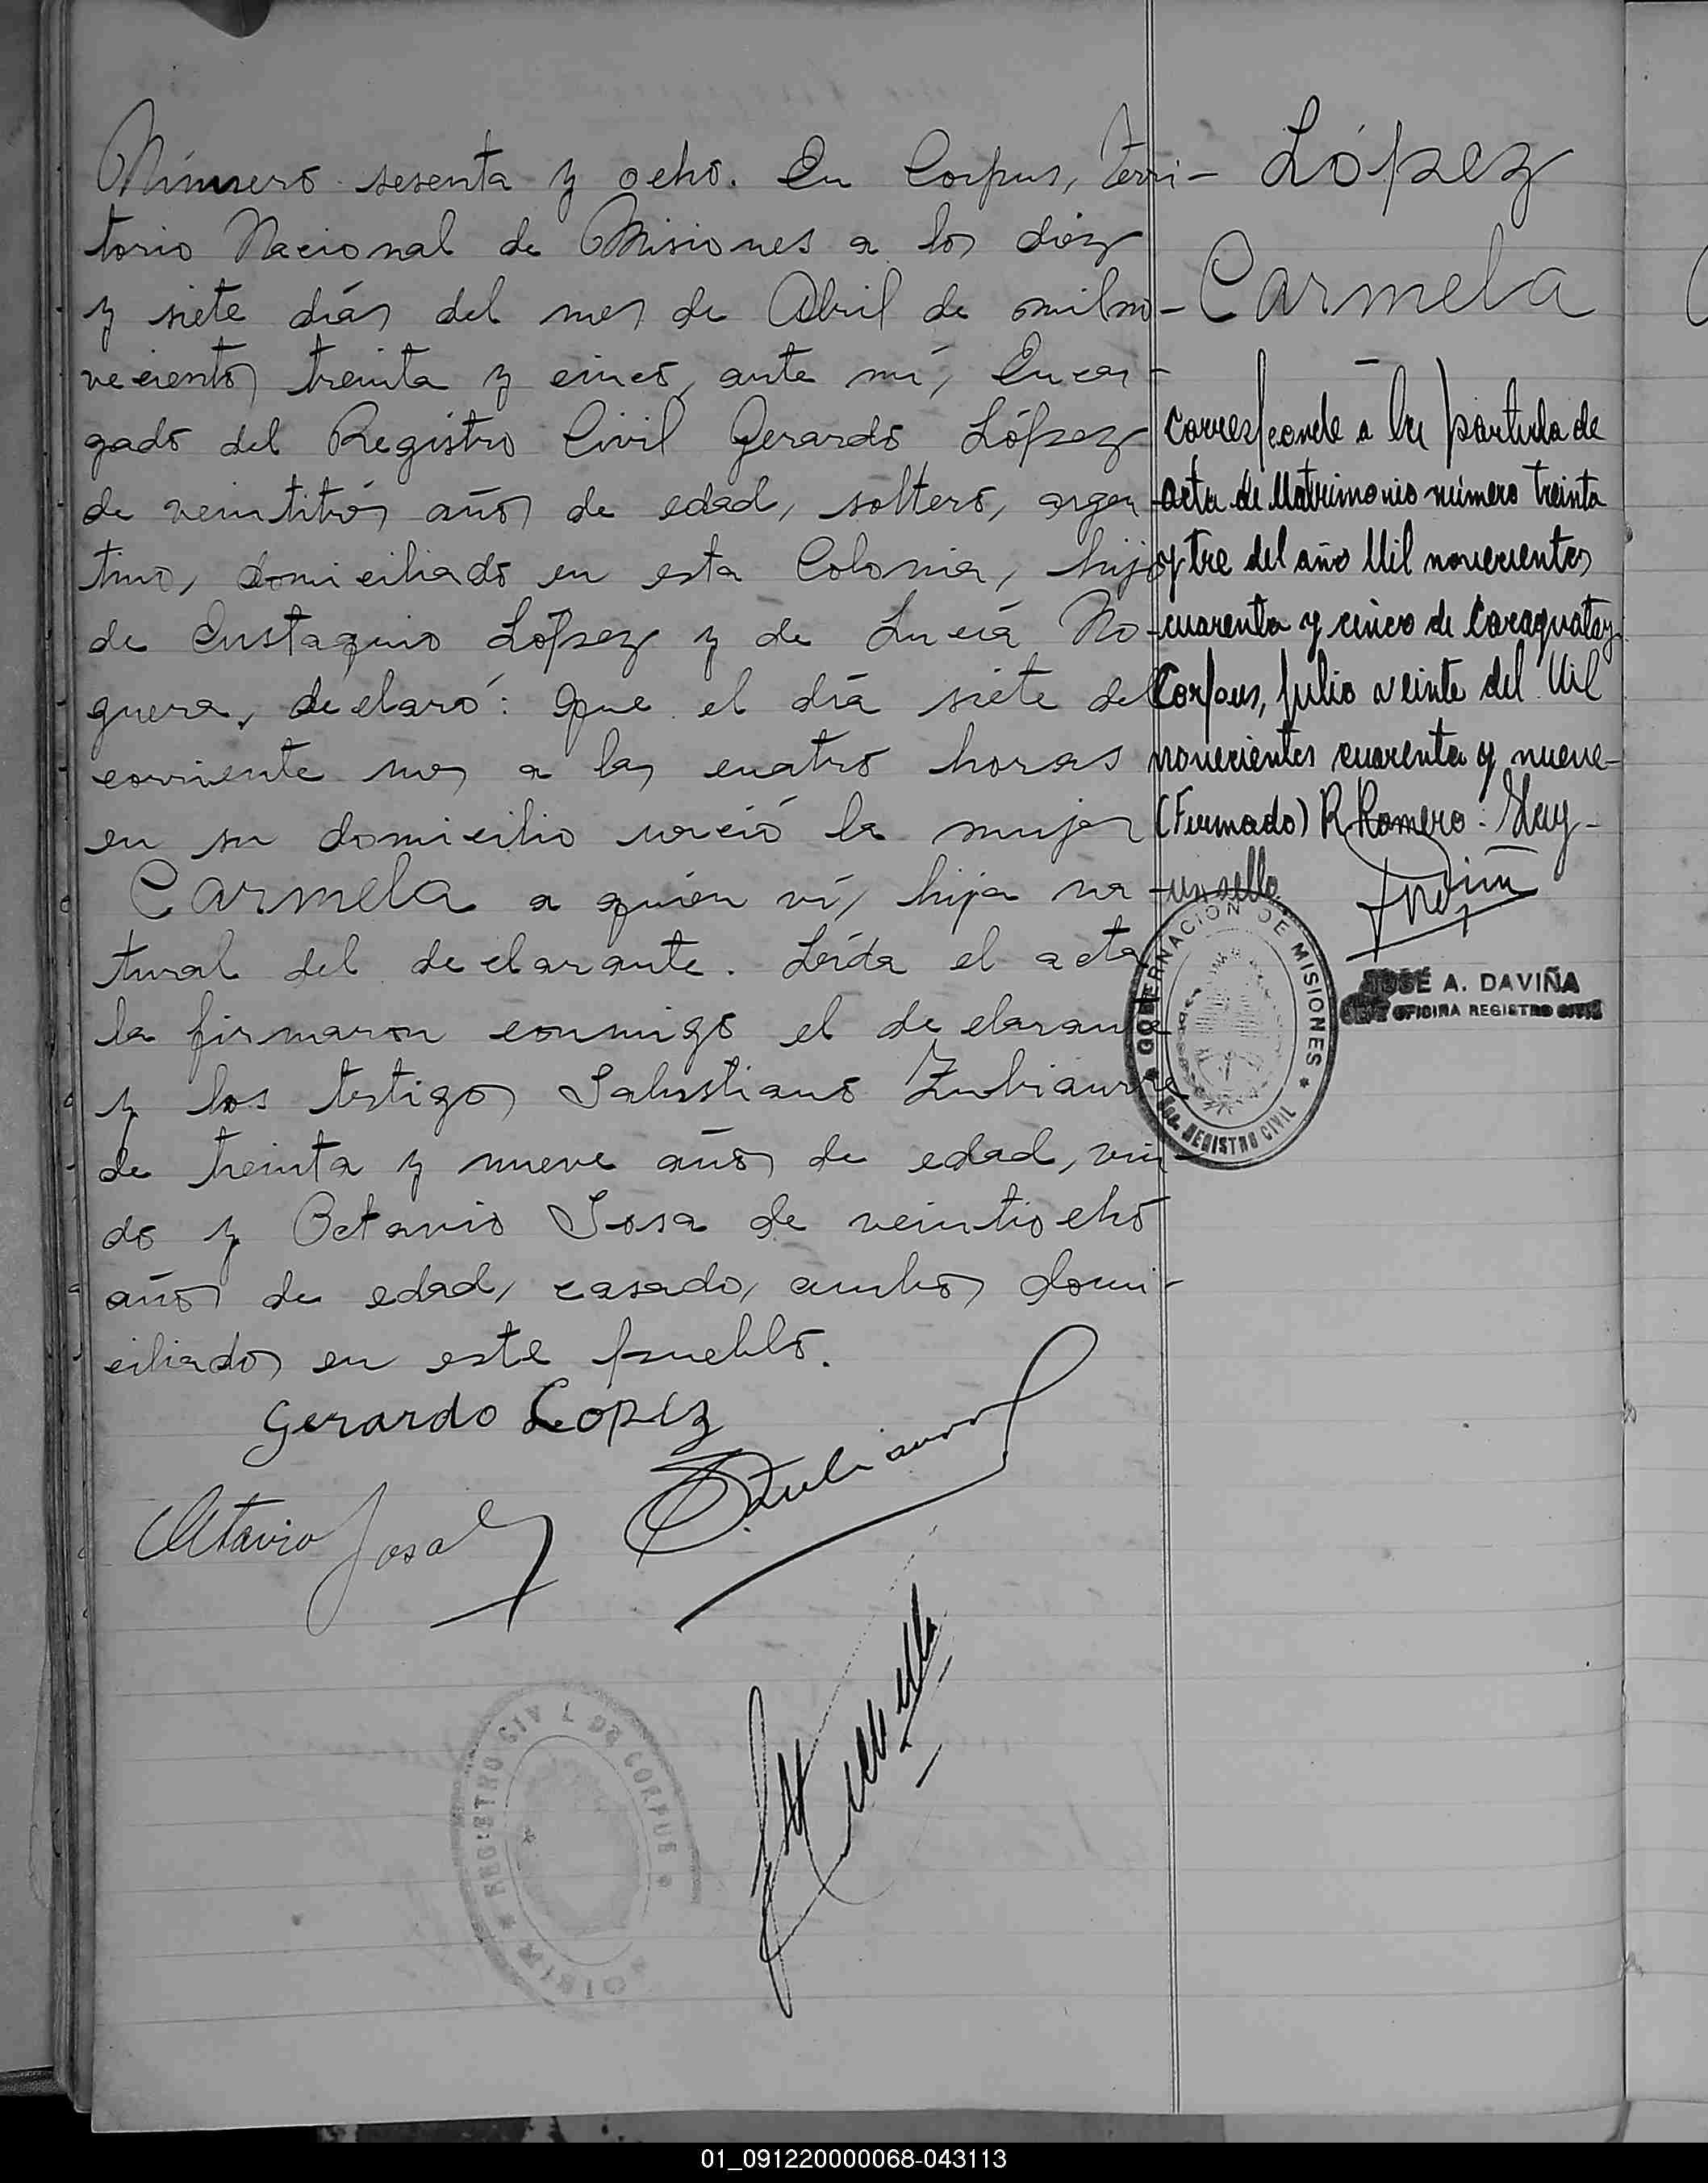 Número sesenta y ocho. En Corpus, Terri-
torio Nacional de Misiones a los diez
y siete días del mes de Abril de mil no-
vecientos treinta y cinco, ante mí, Encar-
gado del Registro Civil Gerardo López
de veintitrés años de edad, soltero, argen-
tino, domiciliado en esta Colonia, hijo
de Eustaquio López y de Lucía No-
guera, declaró: Que el día siete del
corriente mes a las cuatro horas
en su domicilio nació la mujer
Carmela a quien ví, hija na-
tural del declarante. Leída el acta
la firmaron conmigo el declarante
y los testigos Salustiano Zubiaurre
de treinta y nueve años de edad, viu-
do y Octavio Sosa de veintiocho
años de edad, casado, ambos domi-
ciliados en este pueblo.
Gerardo Lopez
Octavio Sosa
S. Zubiaurre
REGISTRO CIVIL DE CORPUS
MISIONES
López
Carmela
Corresponde a la partida de
acta de Matrimonio número treinta
y tre del año Mil novecientos
cuarenta y cinco de Caraguatay
Corpus, julio veinte del Mil
novecientos cuarenta y nueve-
(Firmado) R. Romero: Hay-
un sello
GOBERNACION DE MISIONES
REGISTRO CIVIL
JOSÉ A. DAVIÑA
JEFE OFICINA REGISTRO CIVIL
01_091220000068-043113